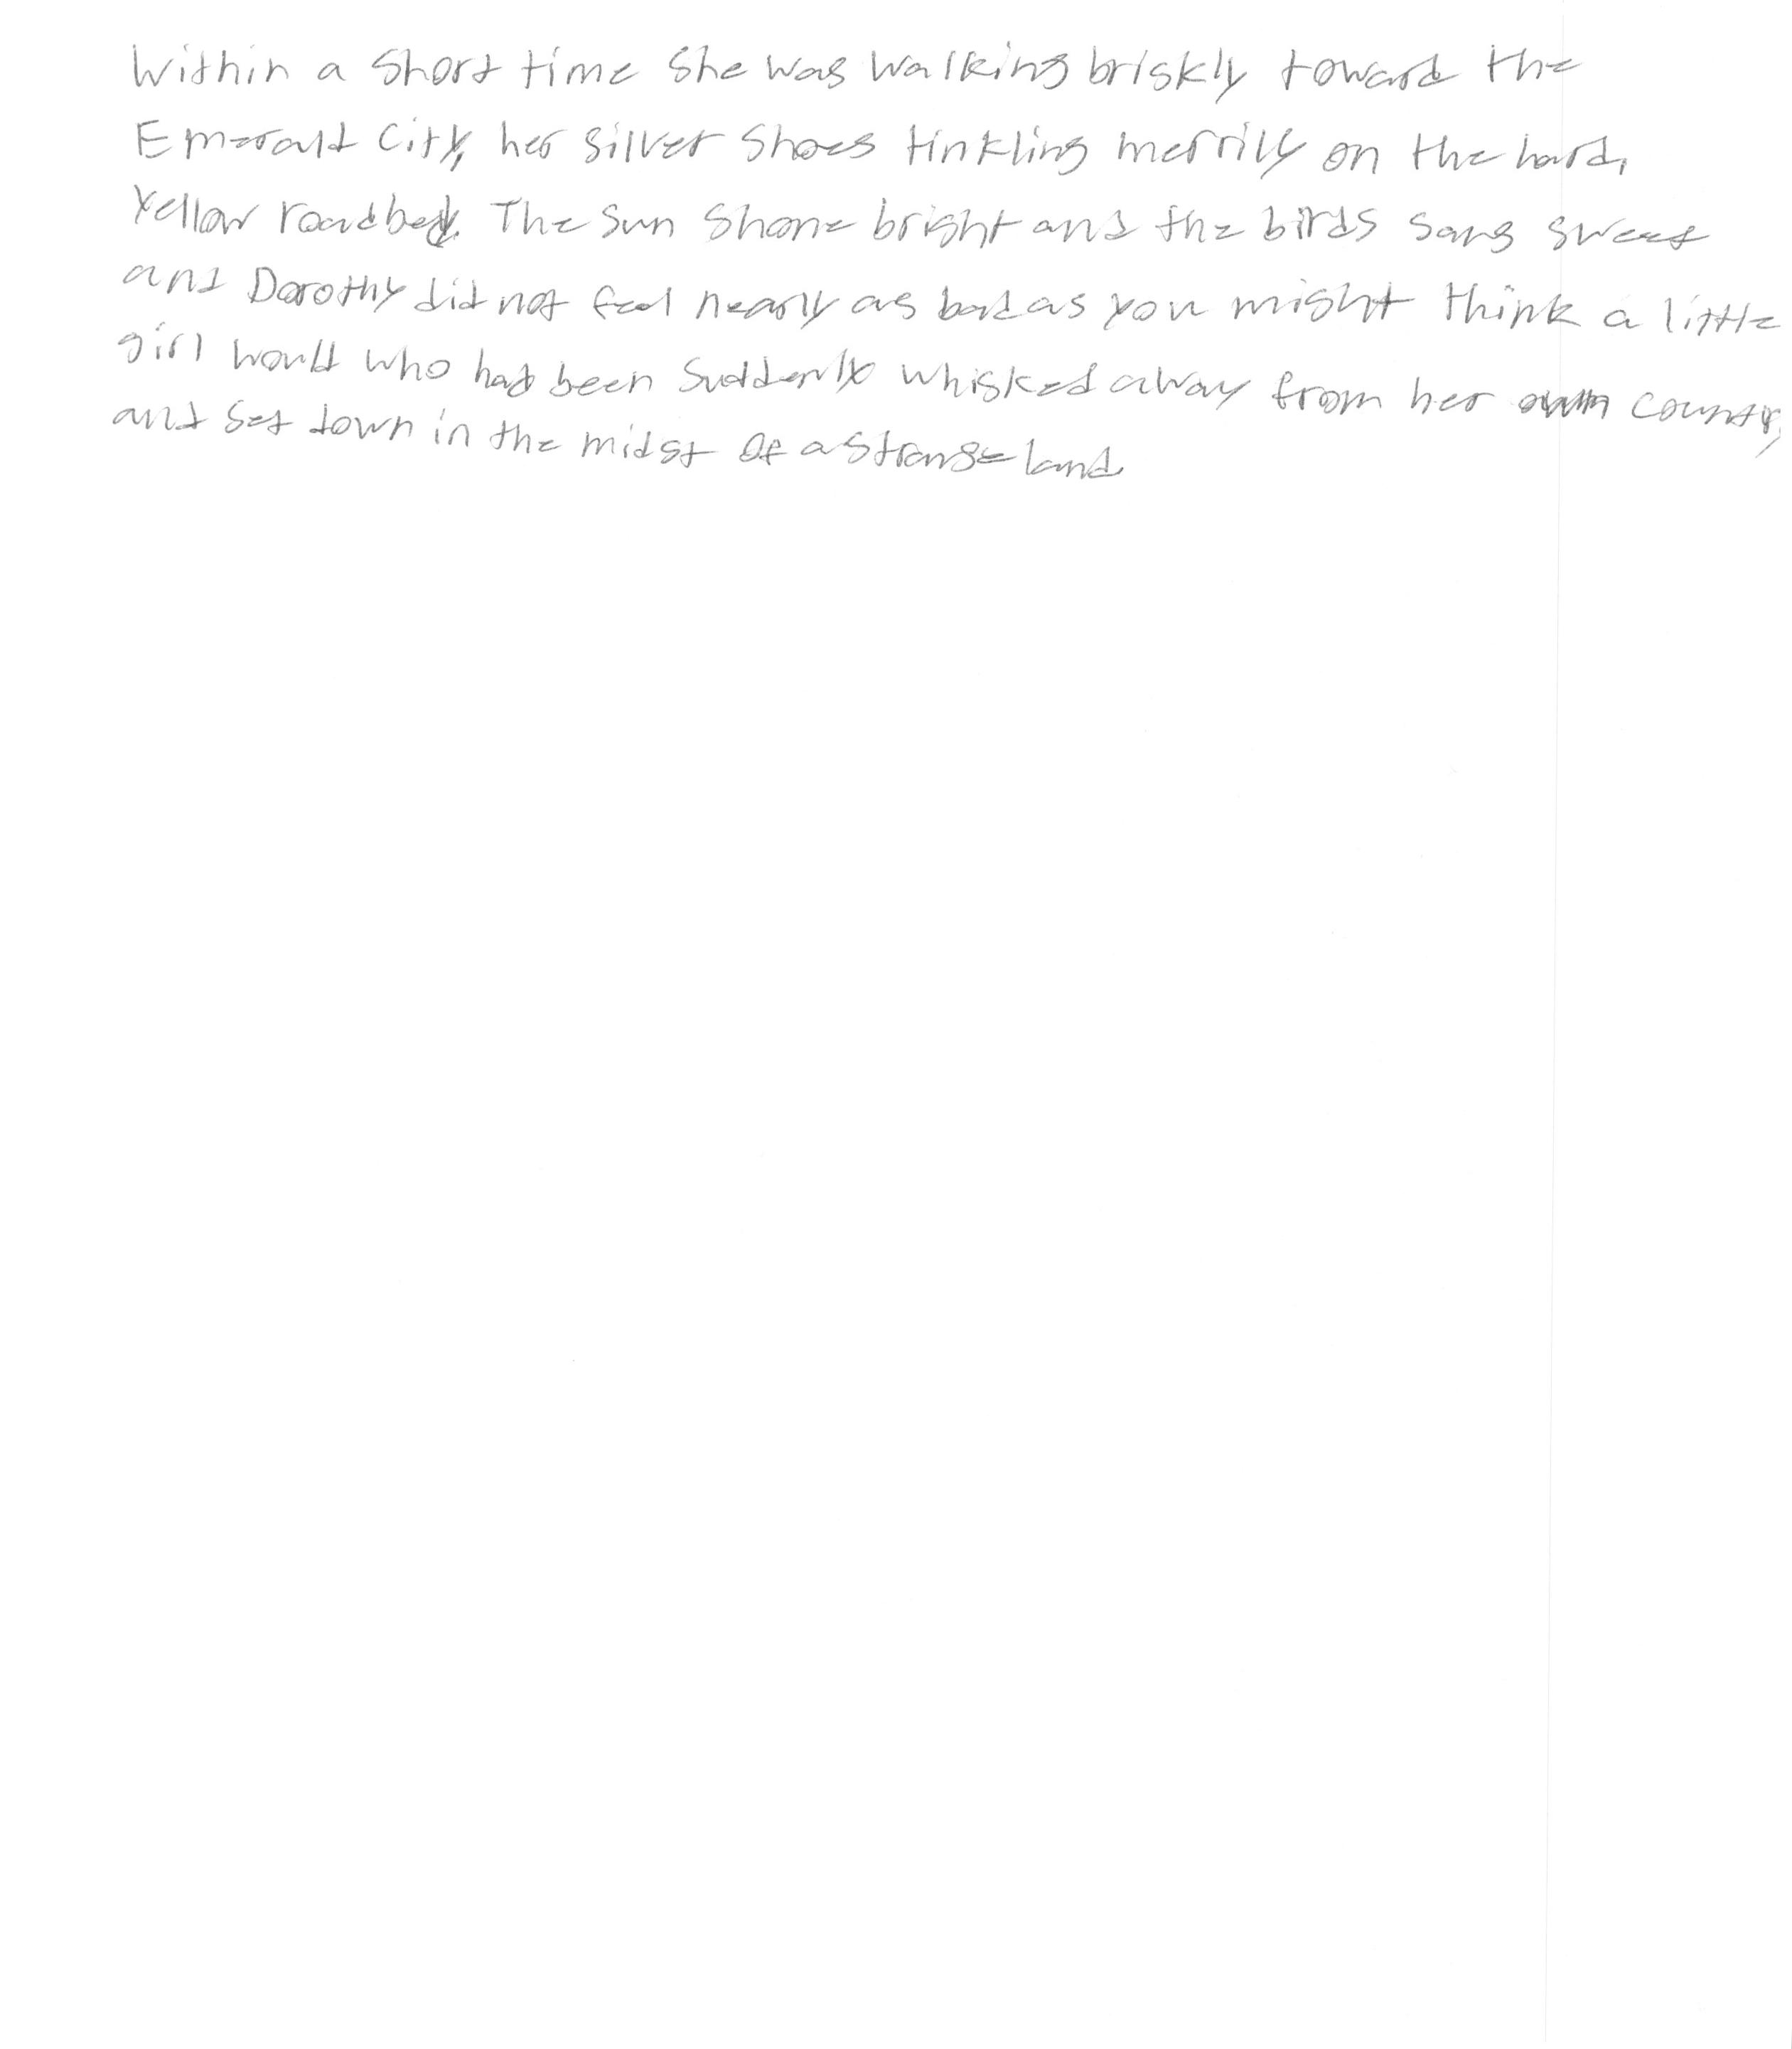 Within a short time she was walking briskly toward the
Emerald City, her silver shoes tinkling merrily on the hard,
yellow roadbed. The sun shone bright and the birds sang sweet
and Dorothy did not feel nearly as bad as you might think a little
girl would who had been suddenly whisked away from her own country
and set down in the midst of a strange land.